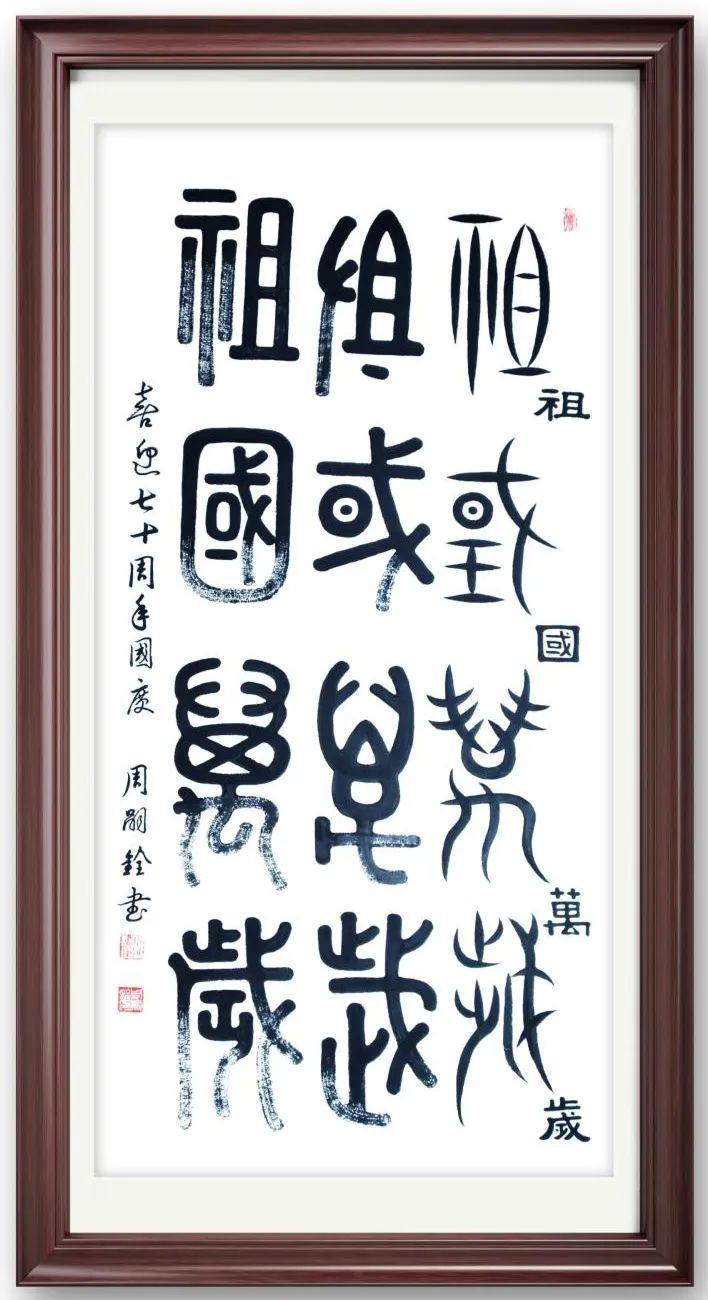 祖國萬歲
祖國萬歲
祖國萬歲
祖
國
萬
歲
喜迎七十周年國慶 周嗣銓書